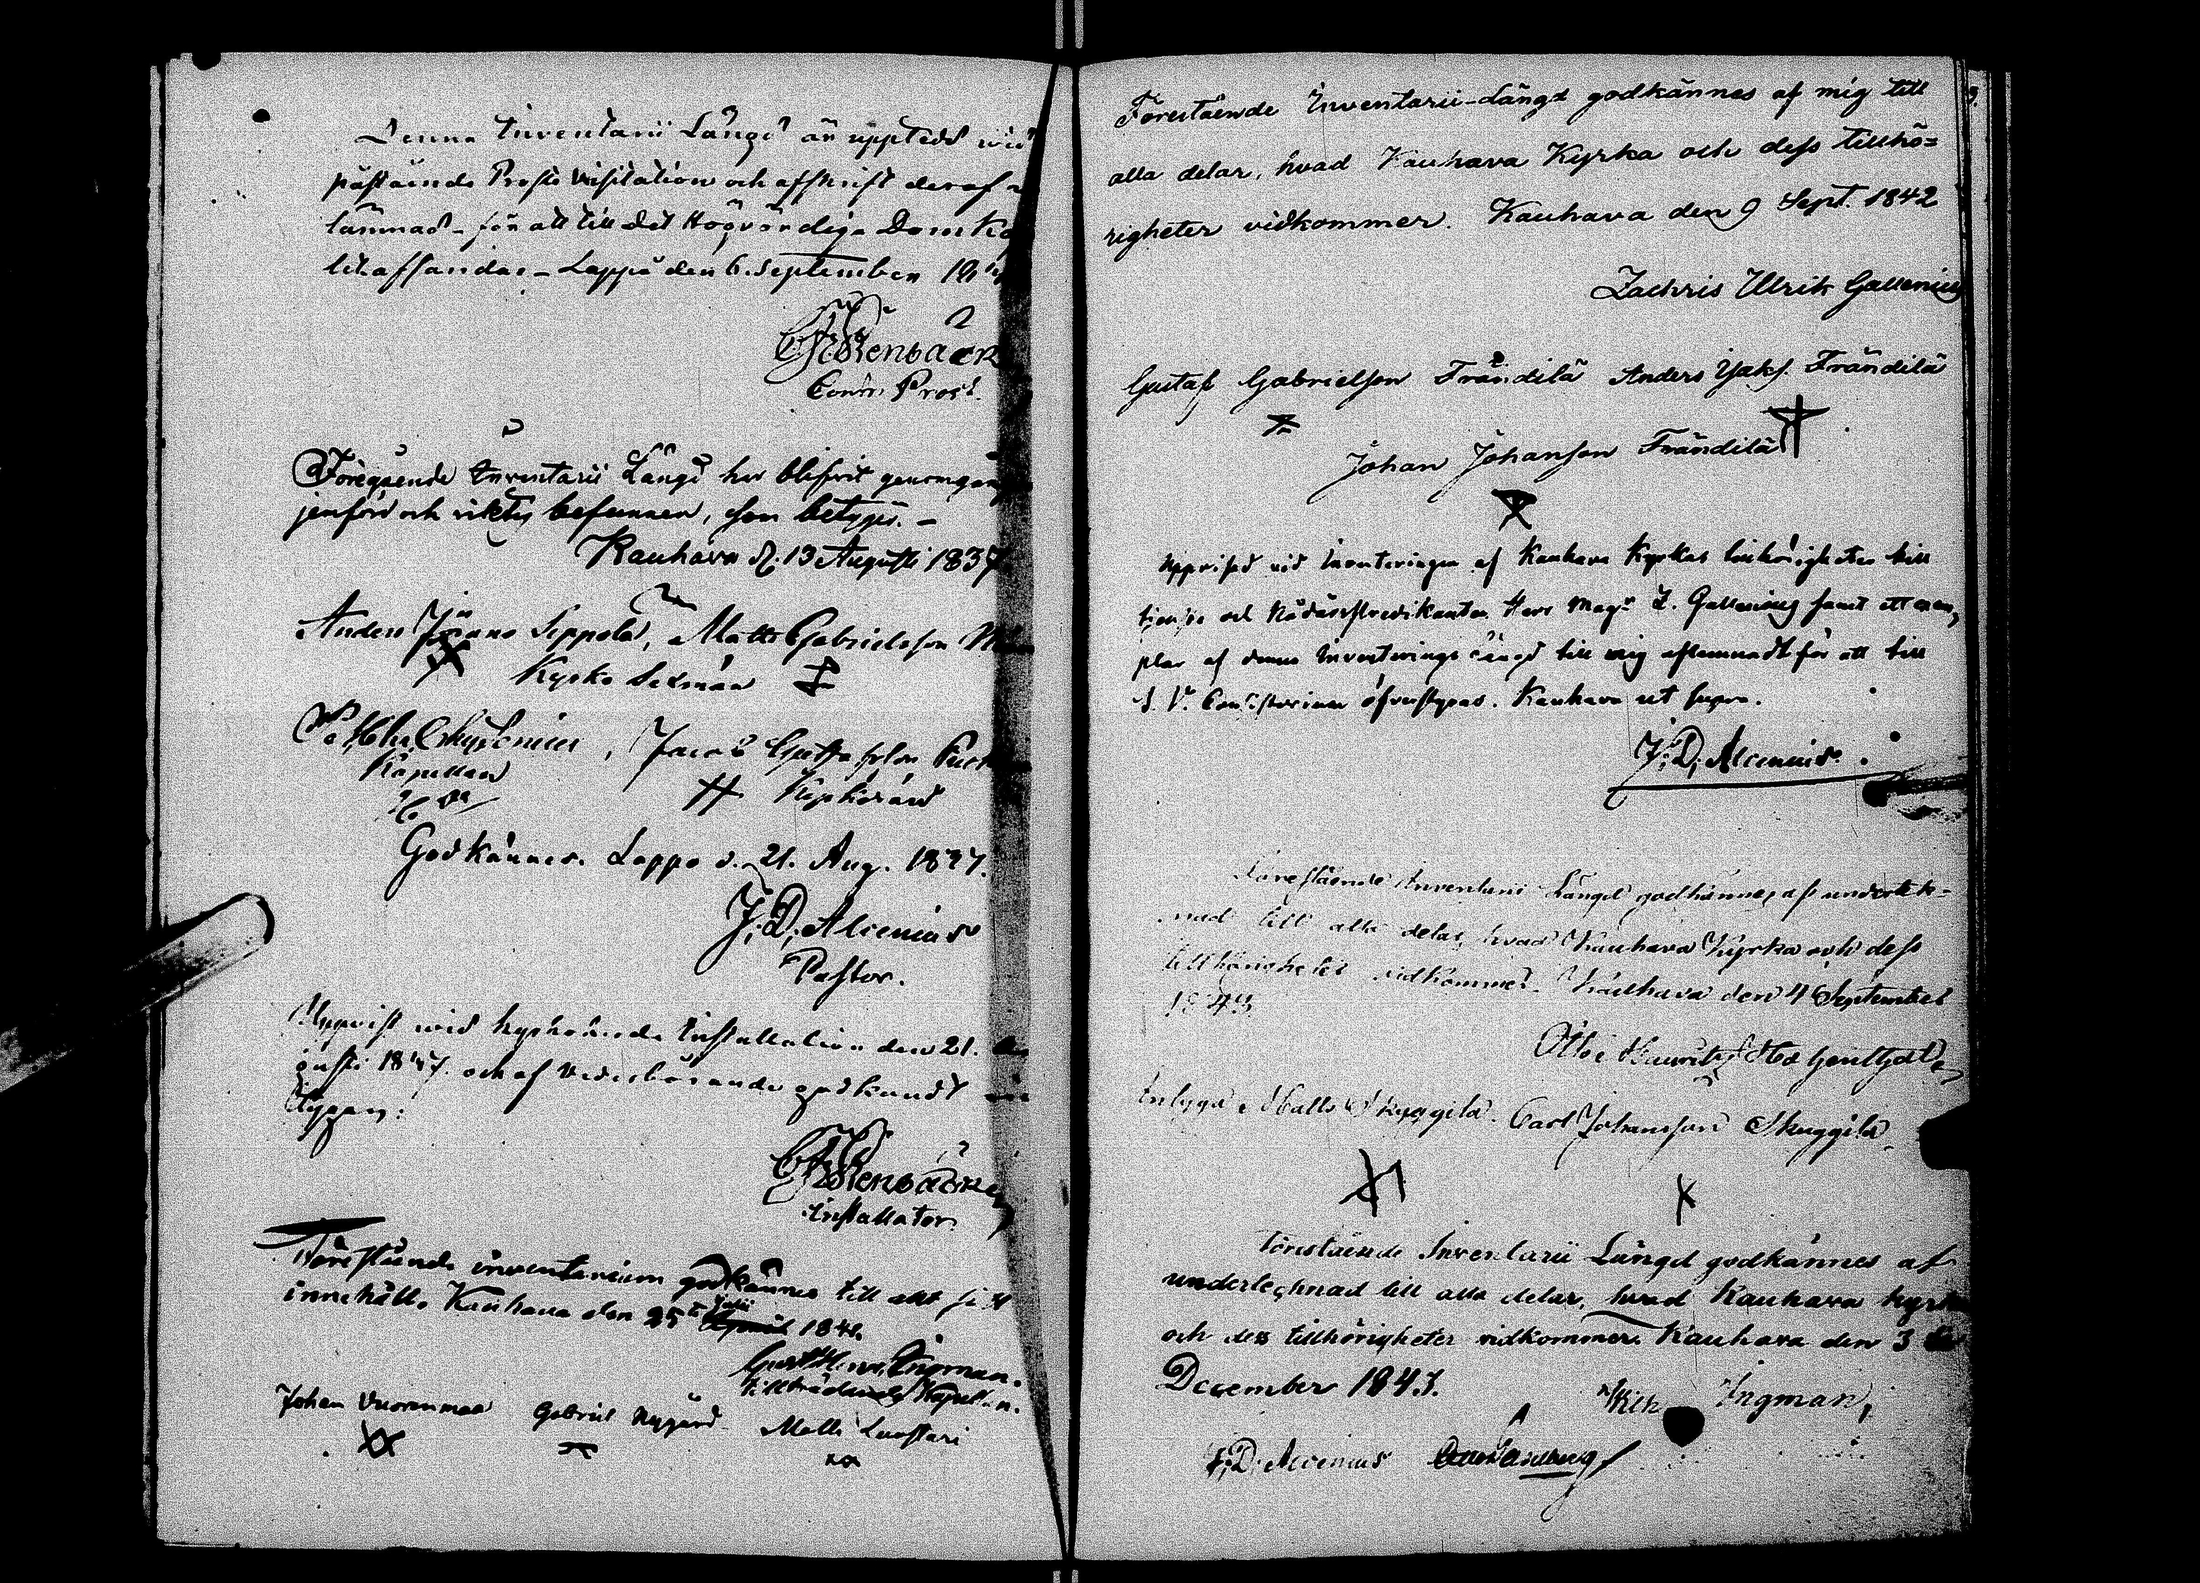 Denna Inventarii Längd är uppteed wid
påstående Prosts Visitation och afskrift deraf
lämnad för att till det Högvördiga DomKa
let afsändas. Lappo den 6. September
Contr. Prost.
Föregående Inventarii Längd har blifvit genomgån
jemförd och riktig befunnen, som betygar. –
Kauhava d. 13 Augusti 1837
Anders Seppälä, Matts Gabrielsson
Kyrko Sexmän
Kapellan
Jacob Gustafsson
Kyrkovärd
Godkännes. Lappo d. 21. Aug. 1837.
J. D. Alcenius
Pastor.
Uppvist wid hyphoånde Installation den 21.
gusti 1837. och af Vederbörande godkändt
betygar:
Installator
Förestående inventarium godkännes till allt sitt
innehåll. Kauhava den 25te Julii 1841.
Ingman.
tillträdande Kapellan.
Johan Vuorenmaa Gabriel Nygård Matts Luostari
Förestående Inventarii-Längd godkännes af mig till
alla delar, hvad Kauhava Kyrka och dess tillhö=
righeter vidkommer. Kauhava den 9 Sept. 1842
Zachris Ulrik Gallenius
Gustaf Gabrielson Frändilä Anders Isaks. Frändilä
Johan Johanson Frändilä
Uppvisad vid Inventeringen af Kauhava Kyrkas tillhörigheter till
tjenste och Nådårspredikanten Herr Magr Z. Gallenius samt ett exem,
plar af denna Inventerings Längd till mig aflemnadt för att till
S. V. Consistorium öfverstyras. Kauhava ut supra.
J. D. Alcenius.
Förestående Inventarii Längd godkännes af underteck=
nad till alla delar, hvad Kauhava Kyrka och dess
tillhörigheter vidkommer. Kauhava den 4 September
1843
Otto Mauritz
Inlyga Matts Skuggila. Carl Johansson Skuggila
Förestående Inventarii Längd godkännes af
undertecknad till alla delar, hvad Kauhava kyrka
och dess tillhörigheter vidkommer. Kauhava den 3
December 1843.
Ingman,
J. D. Alcenius